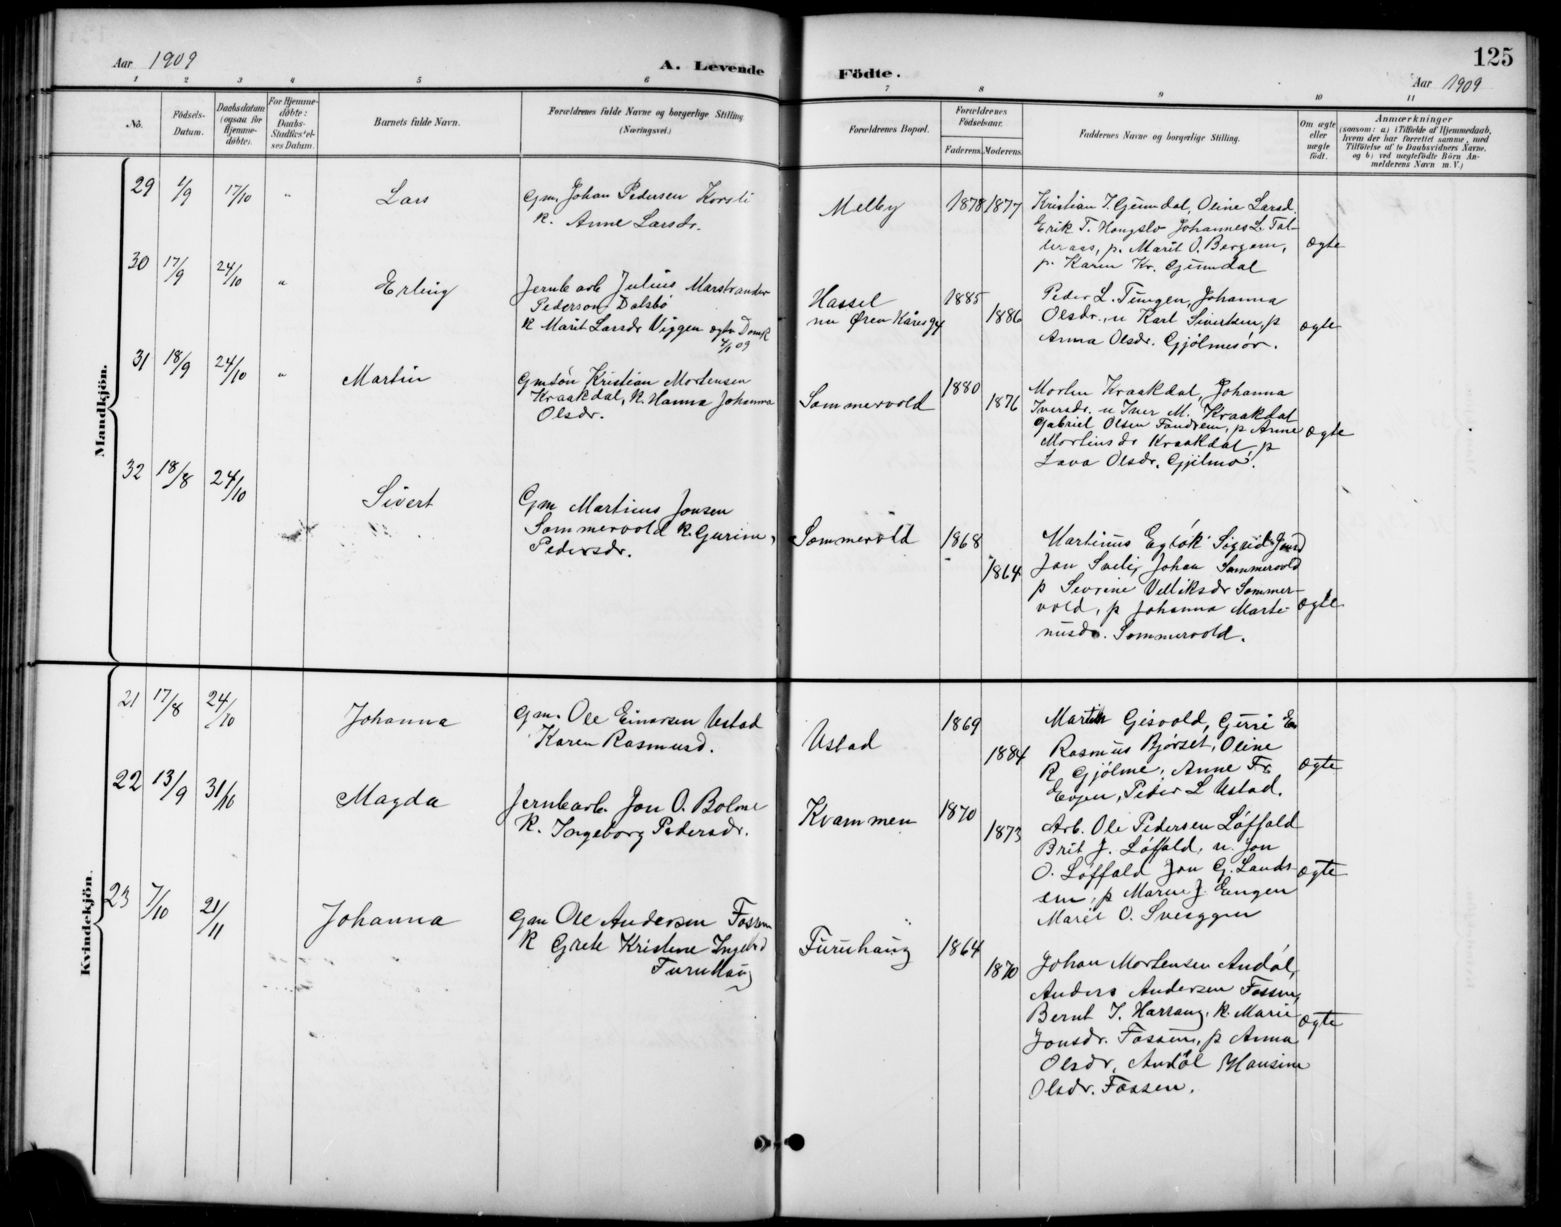 125
Aar 1909
A. Levende Födte.
Aar 1909
1 2 3 4 5 6 7 8 9 10 11
No.
Födsels-Datum.
Daabsdatum (ogsaa for Hjemme-döbte).
For Hjemme-döbte: Daabs-Stadfæstel-ses Datum.
Barnets fulde Navn.
Forældrenes fulde Navne og borgerlige Stilling (Næringsvei.)
Forældrenes Bopæl.
Forældrenes Födselsaar.
Faderens. Moderens.
Faddernes Navne og borgerlige Stilling.
Om ægte eller uægte födt.
Anmærkninger
(saasom: a) i Tilfælde af Hjemmedaab,
hvem der har forrettet samme, med
Tilföielse af to Daabsvidners Navne,
og b) ved uægtefödte Börn An-
melderens Navn m. V.)
Mandkjön.
29 1/9 17/10 " Lars
Gm. Johan Pedersen Korsli
K. Anne Larsdr.
Melby 1878 1877
Kristian J. Gjumdal, Oline Larsd.
Erik T. Hongslo Johannes L. Tal-
leraas, p. Marit O. Bergem,
p. Karen Kr. Gjumdal
ægte
30 17/9 24/10 " Erling
Jernb arb Julius Marstrander
Pederson Dalsbø
K Marit Larsdr Viggen
Hassel
nu Øren
1885 1886
Peder L. Tungen, Johanna
Olsdr., u Karl Sivertsen, p
Anna Olsdr. Gjølmesør.
ægte
31 18/9 24/10 " Martin
Gmsøn Kristian Mortensen
Kraakdal, K. Hanna Johanna
Olsdr.
Sommervold 1880 1876
Morten Kraakdal, Johanna
Iversdr. u Iver M. Kraakdal
Gabriel Olsen p Anne
Mortinsdr Kraakdal, p
Lava Olsdr. Gjølmo.
ægte
32 18/8 24/10 Sivert
Gm Martinus Jonsen
Sommervold K. Gurine
Pedersdr.
Sommervold 1868 1864
Martinus Jonsd
Jon Johan Sommervold
p Sevrine Sommer-
vold, p Johanna Marti-
nusdr. Sommervold.
ægte
Kvindekjön.
21 17/8 24/10 Johanna
Gm. Ole Einarsen Ustad
Karen Rasmusd.
Ustad 1869 1884
Martin Gisvold, Gurri
Rasmus Bjørset, Oline
R Gjølme, Anne Fr.
Evjen, Peder L Ustad.
ægte
22 13/9 31/10 Magda
Jernbarb. Jon O. Bolme
K. Ingeborg Pedersdr.
Kvammen 1870 1873
Arb. Ole Pedersen Løffald
Brit J. Løffald, u. Jon
O. Løffald Jon G. Lands-
em, p Maren J. Engen
Marit O. Sveggen
ægte
23 7/10 21/11 Johanna
Gm Ole Andersen Fossem
K Grete Kristine
Furuhaug
Furuhaug 1864 1870
Johan Mortensen Andøl,
Anders Andersen Fossem,
Bernt I. Harrang, K. Marie
Jonsdr. Fossem, p Anna
Olsdr. Andøl Hansine
Olsdr. Fossen.
ægte